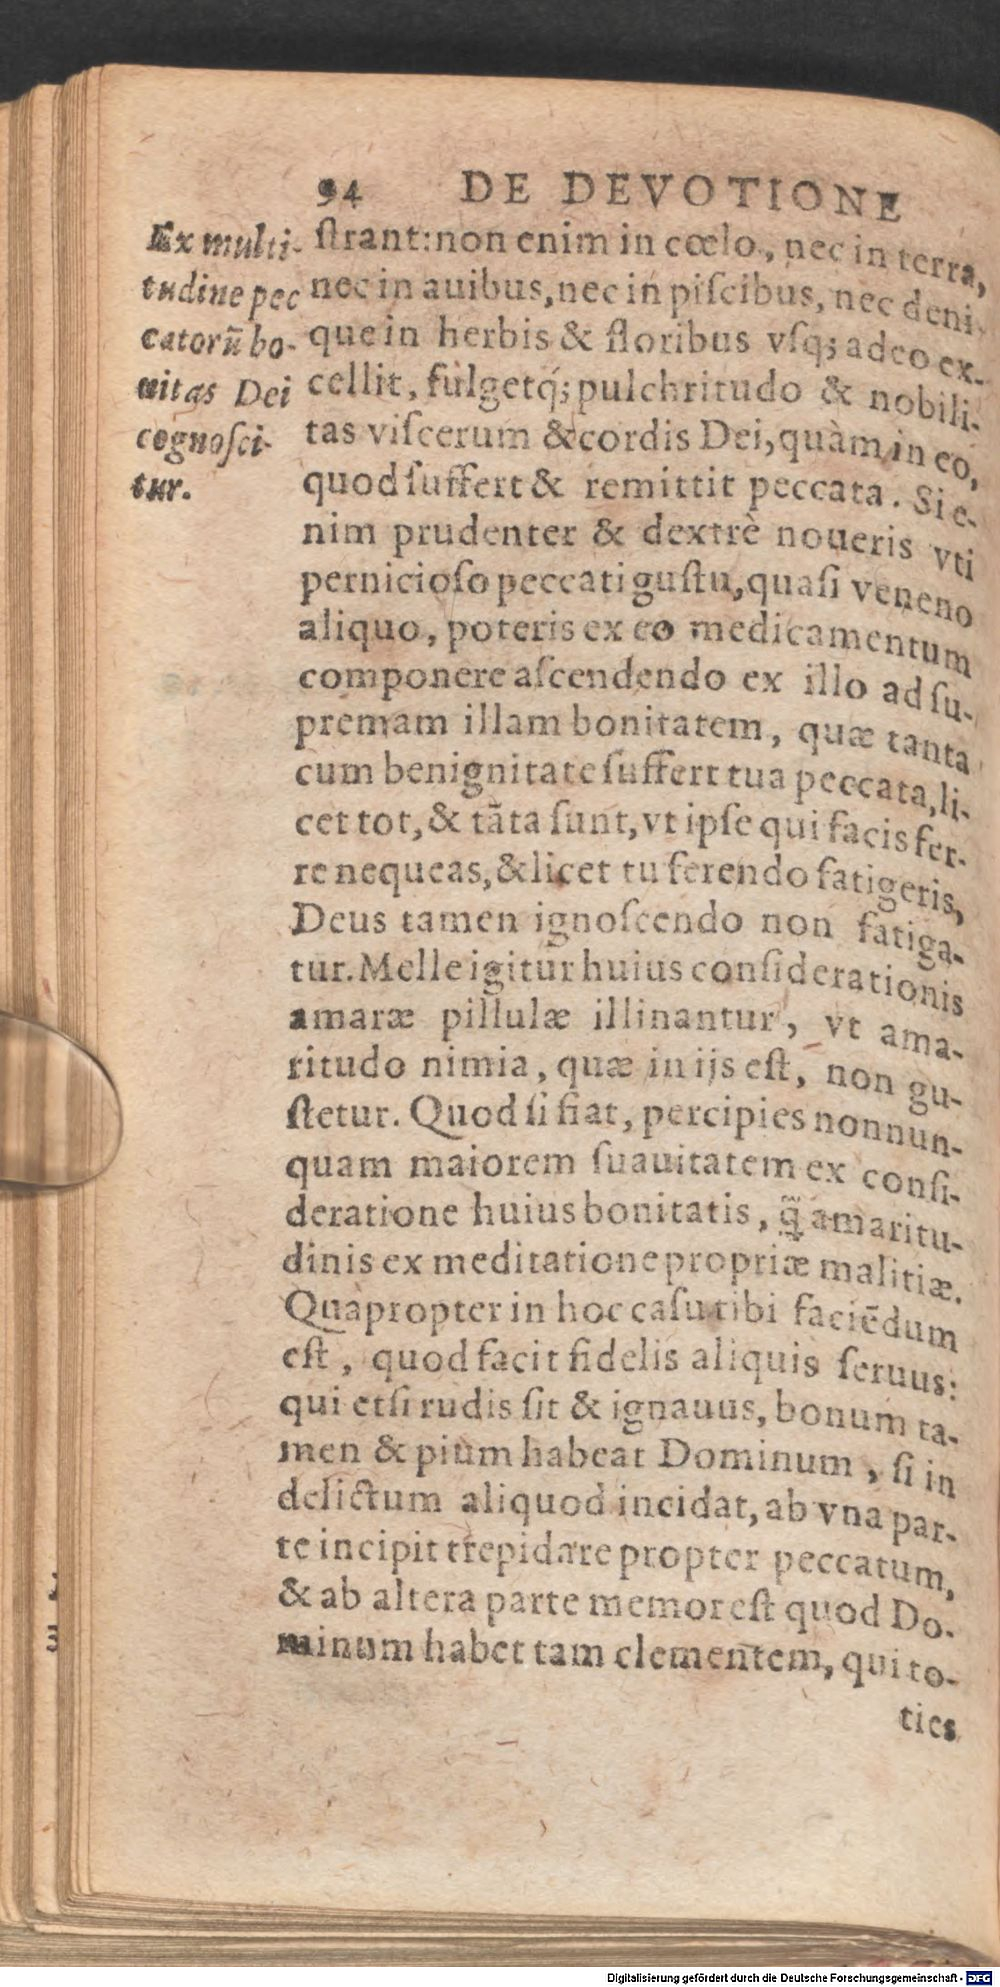 94 DE DEVOTIONE
Ex multi-
tudine pec
catorũ bo-
nitas Dei
cognosci-
tur.
ſtrant: non enim in cœlo, nec in terra,
nec in auibus, nec in piſcibus, nec deni-
que in herbis & floribus vſq; adeo ex-
cellit, fulgetq́; pulchritudo & nobili-
tas viſcerum & cordis Dei, quàm in eo,
quod ſuffert & remittit peccata. Si e-
nim prudenter & dextrè noueris vti
pernicioſo peccati guſtu, quaſi veneno
aliquo, poteris ex eo medicamentum
componere aſcendendo ex illo ad ſu-
premam illam bonitatem, quæ tanta
cum benignitate ſuffert tua peccata, li-
cet tot, & tãta ſunt, vt ipſe qui facis fer-
re nequeas, & licet tu ferendo fatigeris,
Deus tamen ignoſcendo non fatiga-
tur. Melle igitur huius conſiderationis
amaræ pillulæ illinantur, vt ama-
ritudo nimia, quæ in ijs eſt, non gu-
ſtetur. Quod ſi fiat, percipies nonnun-
quam maiorem ſuauitatem ex conſi-
deratione huius bonitatis, q̃ amaritu-
dinis ex meditatione propriæ malitiæ.
Quapropter in hoc caſu tibi faciẽdum
eſt, quod facit fidelis aliquis ſeruus:
qui etſi rudis ſit & ignauus, bonum ta-
men & pium habeat Dominum, ſi in
delictum aliquod incidat, ab vna par-
te incipit trepidare propter peccatum,
& ab altera parte memor eſt quod Do-
minum habet tam clementem, qui to-
ties
Digitalisierung gefördert durch die Deutsche Forschungsgemeinschaft - DFG